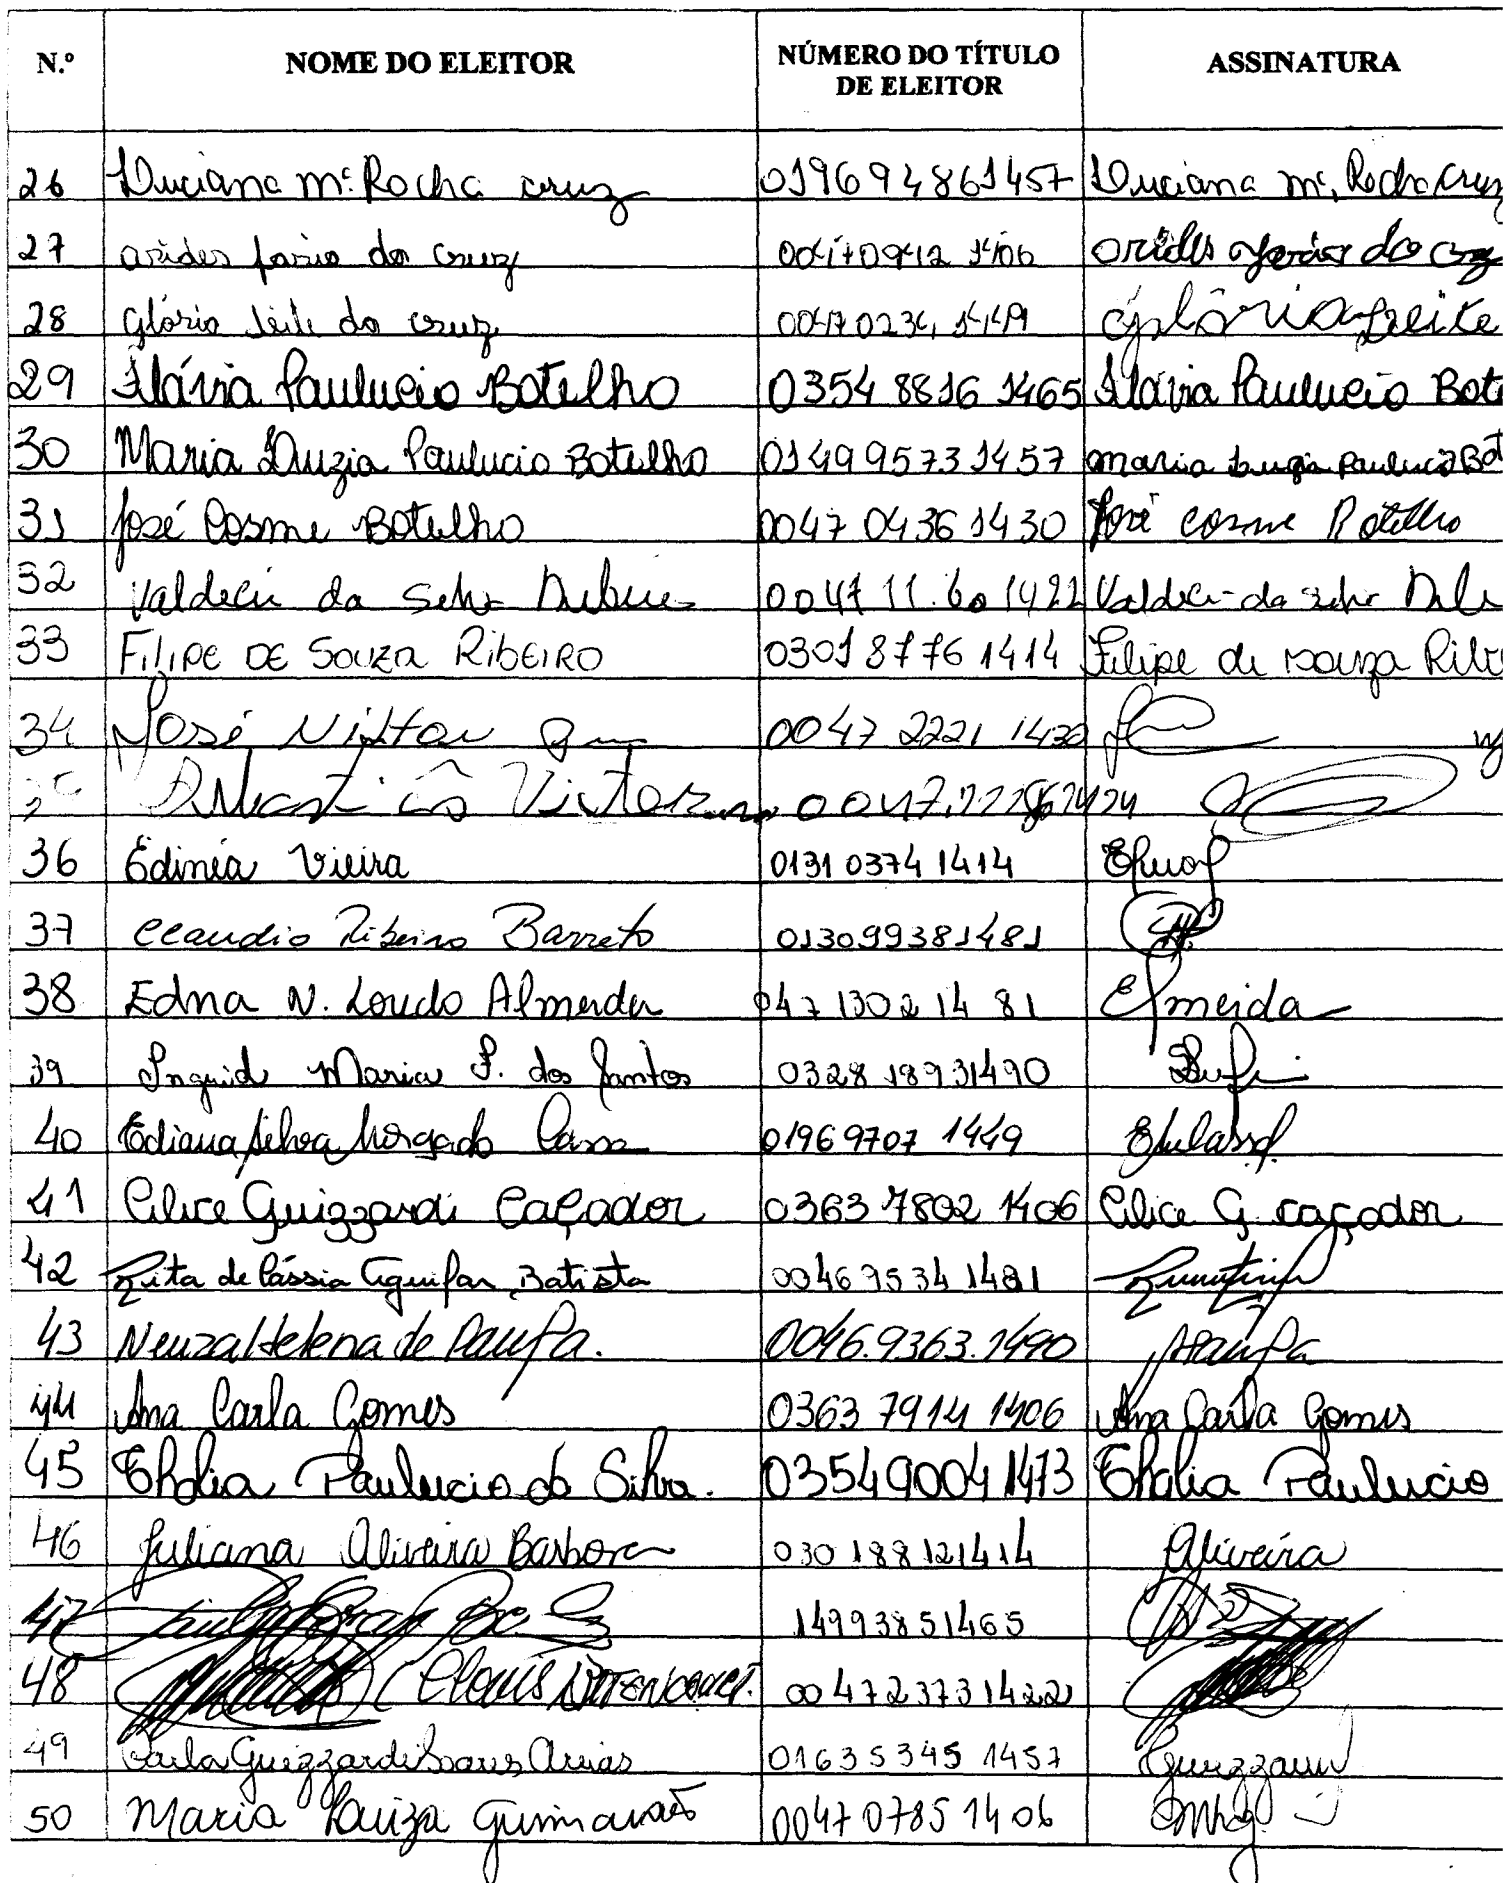 N.º NOME DO ELEITOR NÚMERO DO TÍTULO DE ELEITOR ASSINATURA
26 Luciana Mª Rocha cruz 019694861457 Luciana mª, Rocha Cruz
27 arides faria da cruz arides faria da cruz
28 glória leite da cruz glória Leite
29 Flávia Paulucio Botelho 0354 8816 1465 Flávia Paulucio Bote
30 Maria Luzia Paulucio Botelho 014995731457 maria Luzia Paulucio Bot
31 José Cosme Botelho 0047 0436 1430 José cosme Botelho
32 Valdeci da Silva 0047 11.60 1422 Valdeci da silva
33 FILIPE DE SOUZA RIBEIRO 0301 8776 1414 Filipe de souza Ribe
34 José Nilton 0047 2221 1430
36 Edinéa Vieira 0131 0374 1414
37 Claudio Ribeiro Barreto 013099381481
38 Edna N. Loudo Almeida 047 1302 14 81 Almeida
39 Ingrid Maria F. dos Santos 0328 18931490
40 Ediana Silva Morgado Cassa 01969707 1449
41 Cilice Guizzardi Caçador 0363 7802 1406 Cilice G. caçador
42 Rita de Cássia Aguilar Batista 0046 9534 1481
43 Neuza Helena de Paula. 0046.9363.1490
44 Ana Carla Gomes 0363 7914 1406 Ana Carla Gomes
45 Thalia Paulucio da Silva. 035490041473 Thalia Paulucio
46 Juliana Oliveira Barbosa 030188121414 Oliveira
47 14993851465
48 (Clovis 004723731422
49 Carla Guizzardi Soares Arias 01635345 1457
50 Maria Luiza Guimarães 0047 0785 1406